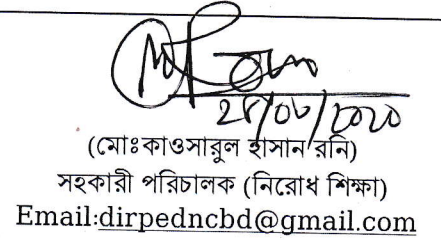 ২৮/০৮/২০২০
(মোঃকাওসারুল হাসান রনি)
সহকারী পরিচালক (নিরোধ শিক্ষা)
Email:dirpedncbd@gmail.com